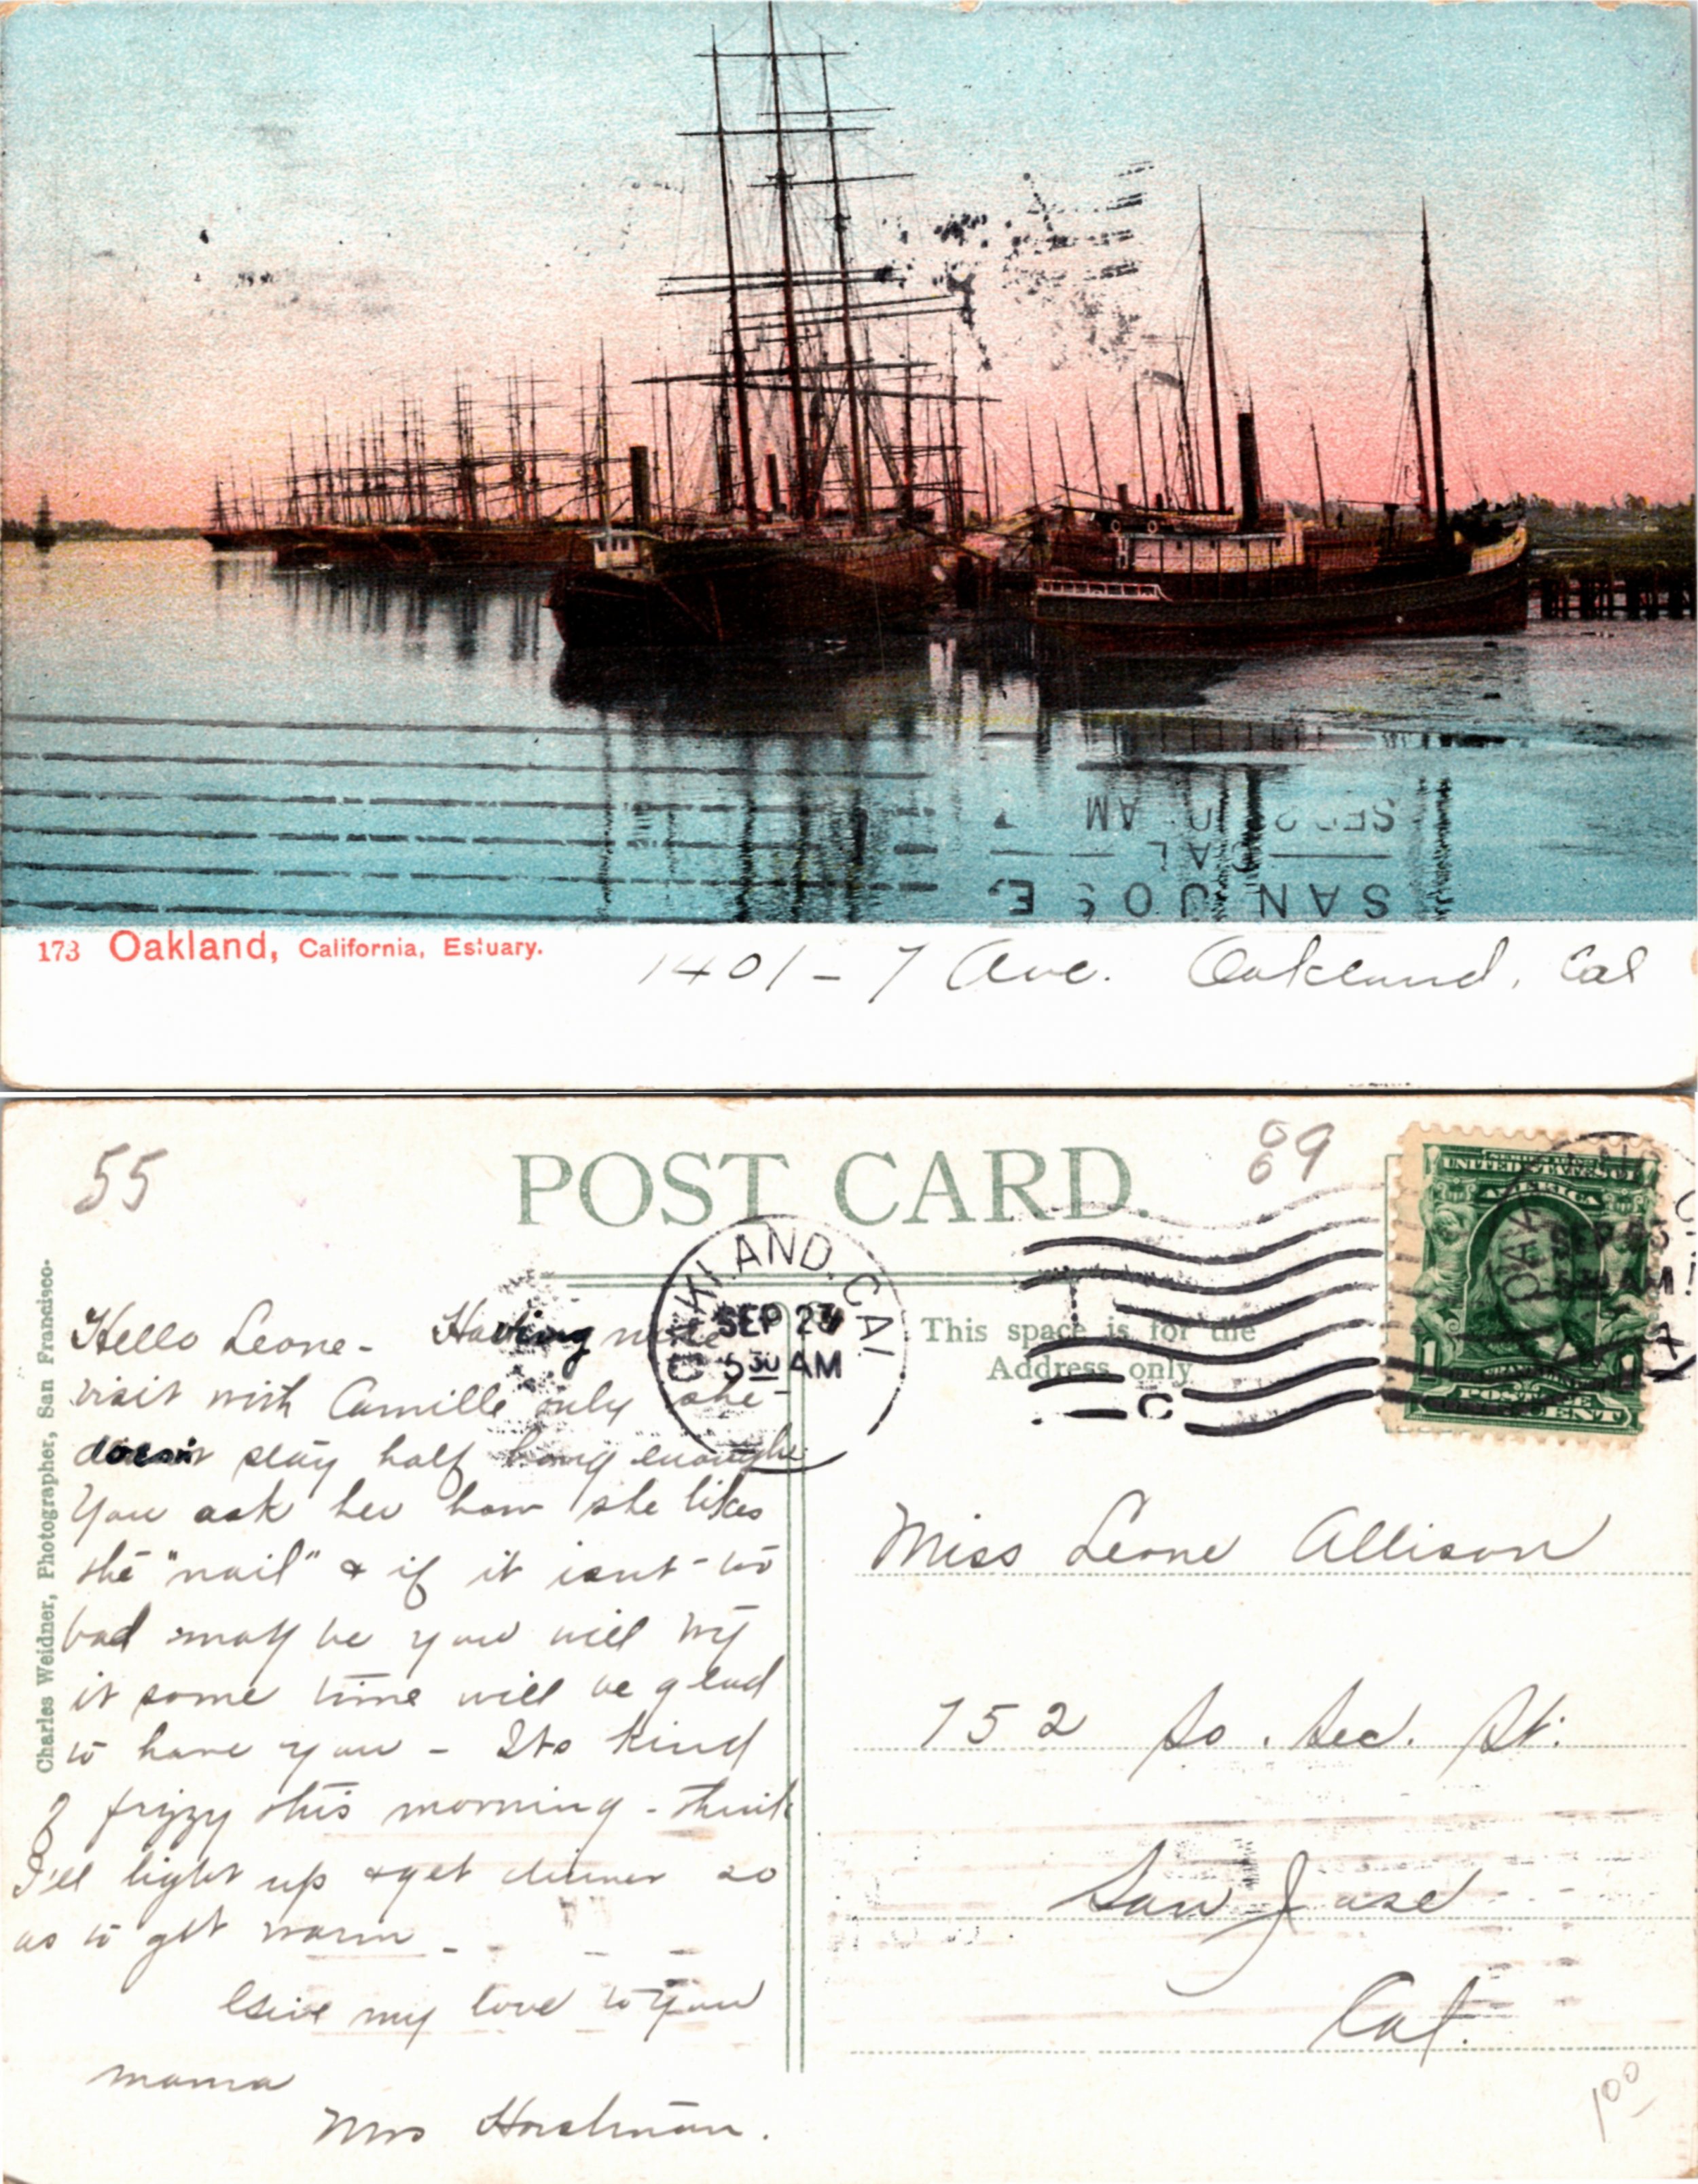 SEP 2 AM
CAL
SAN JOSE,
173 Oakland, California, Estuary.
1401 - 7 Ave. Oakland, Cal
55
89
POST CARD.
UNITED STATES OF
AMERICA
OAKLAND, CAL.
SEP 23
5 30 AM
C
This space is for the
Address only
Charles Weidner, Photographer, San Francisco.
Hello Leone - Having nice
visit with Camille only she
doesn't stay half long enough
You ask her how she likes
the "nail" & if it isnt too
bad may be you will try
it some time will be glad
to have you - Its kind
of frizzy this morning - think
I'll light up & get dinner so
as to get warm -
Give my love to your
mama
Mrs Horstman.
Miss Leone Allison
752 So. Sec. St.
San Jose
Cal.
1 00